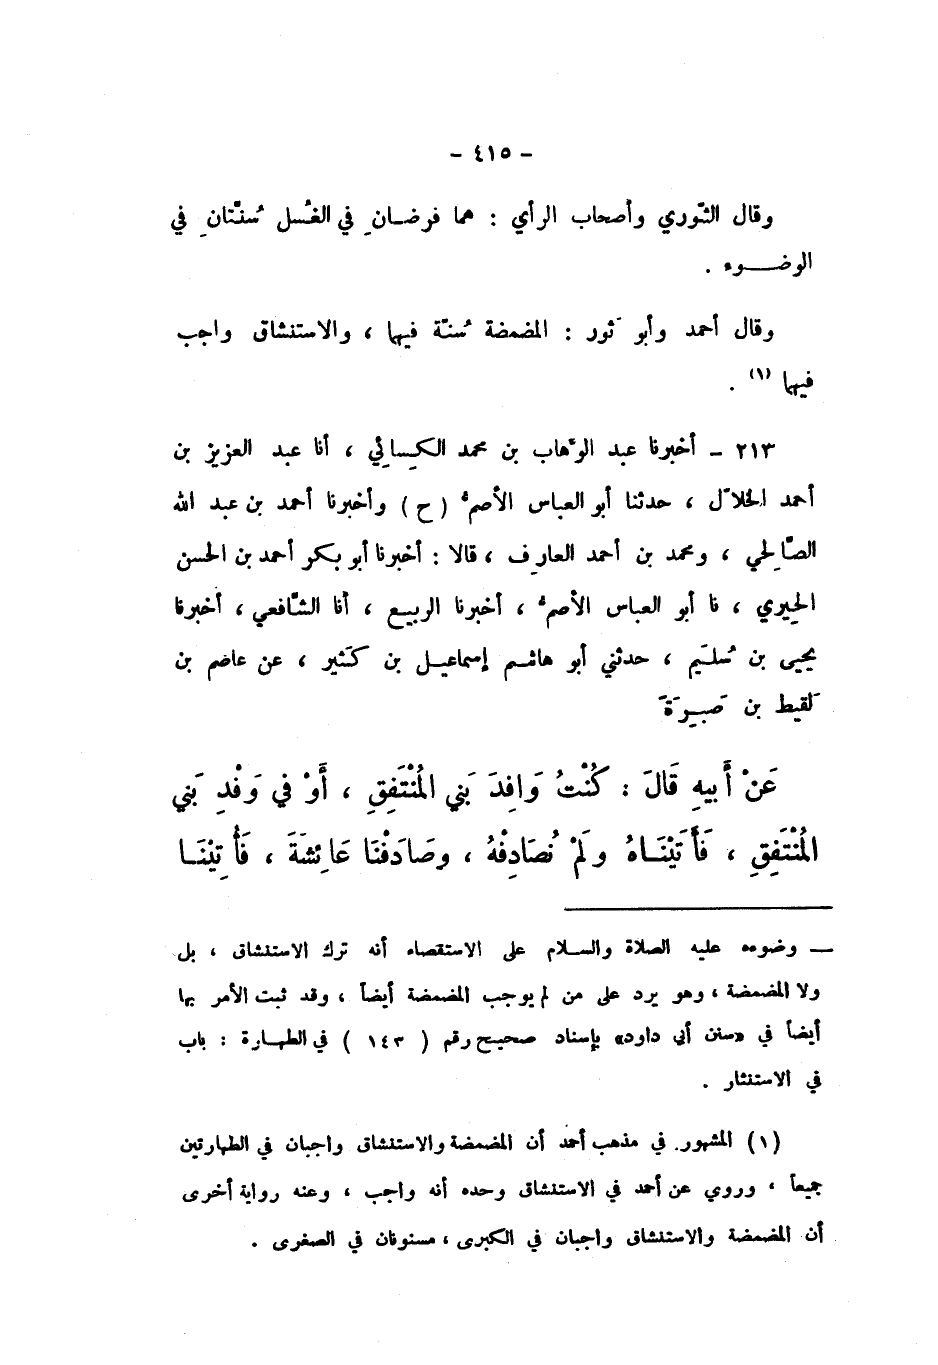 - ٤١٥ -
وقال الثَّوري وأصحاب الرأي : هما فرضانِ في الغُسل سُنتَّانِ في
الوضـــوء .
وقال أحمد وأبو ثَور : المضمضة سُنّة فيهما ، والاستنشاق واجب
فيهما (١) .
٢١٣ – أخبرنا عبد الوَهاب بن محمد الكِسائِي ، أنا عبد العزيز بن
أحمد الخلاّل ، حدثنا أبو العباس الأصمُّ ( ح ) وأخبرنا أحمد بن عبد الله
الصَّالِحي ، ومحمد بن أحمد العارِف ، قالا : أخبرنا أبو بكر أحمد بن الحسن
الحِيري ، نا أبو العباس الأصمُّ ، أخبرنا الربيع ، أنا الشَّافعي ، أخبرنا
يحيى بن سُليَم ، حدثني أبو هاشم إسماعيل بن كَثير ، عن عاضم بن
لَقيط بن صَبِرَةَ
عَنْ أَبيهِ قَالَ : كُنْتُ وَافِدَ بَني المُنْتَفِقِ ، أَوْ في وَفْدِ بَني
المُنْتَفِقِ ، فَأَتَيْنَـاهُ ولَمْ نُصَادِفْهُ ، وصَادَفْنَا عَائشَةَ ، فَأُتِيْنَـا
— وضوءه عليه الصلاة والسلام على الاستقصاء أنه ترك الاستنشاق ، بل
ولا المضمضة ، وهو يرد على من لم يوجب المضمضة أيضاً ، وقد ثبت الأمر بها
أيضاً في «سنن أبي داود» بإسناد صحيح رقم ( ١٤٣ ) في الطهـارة : باب
في الاستنثار .
(١) المشهور في مذهب أحمد أن المضمضة والاستنشاق واجبان في الطهارتين
جميعاً ، وروي عن أحمد في الاستنشاق وحده أنه واجب ، وعنه رواية أخرى
أن المضمضة والاستنشاق واجبان في الكبرى ، مسنونان في الصغرى .